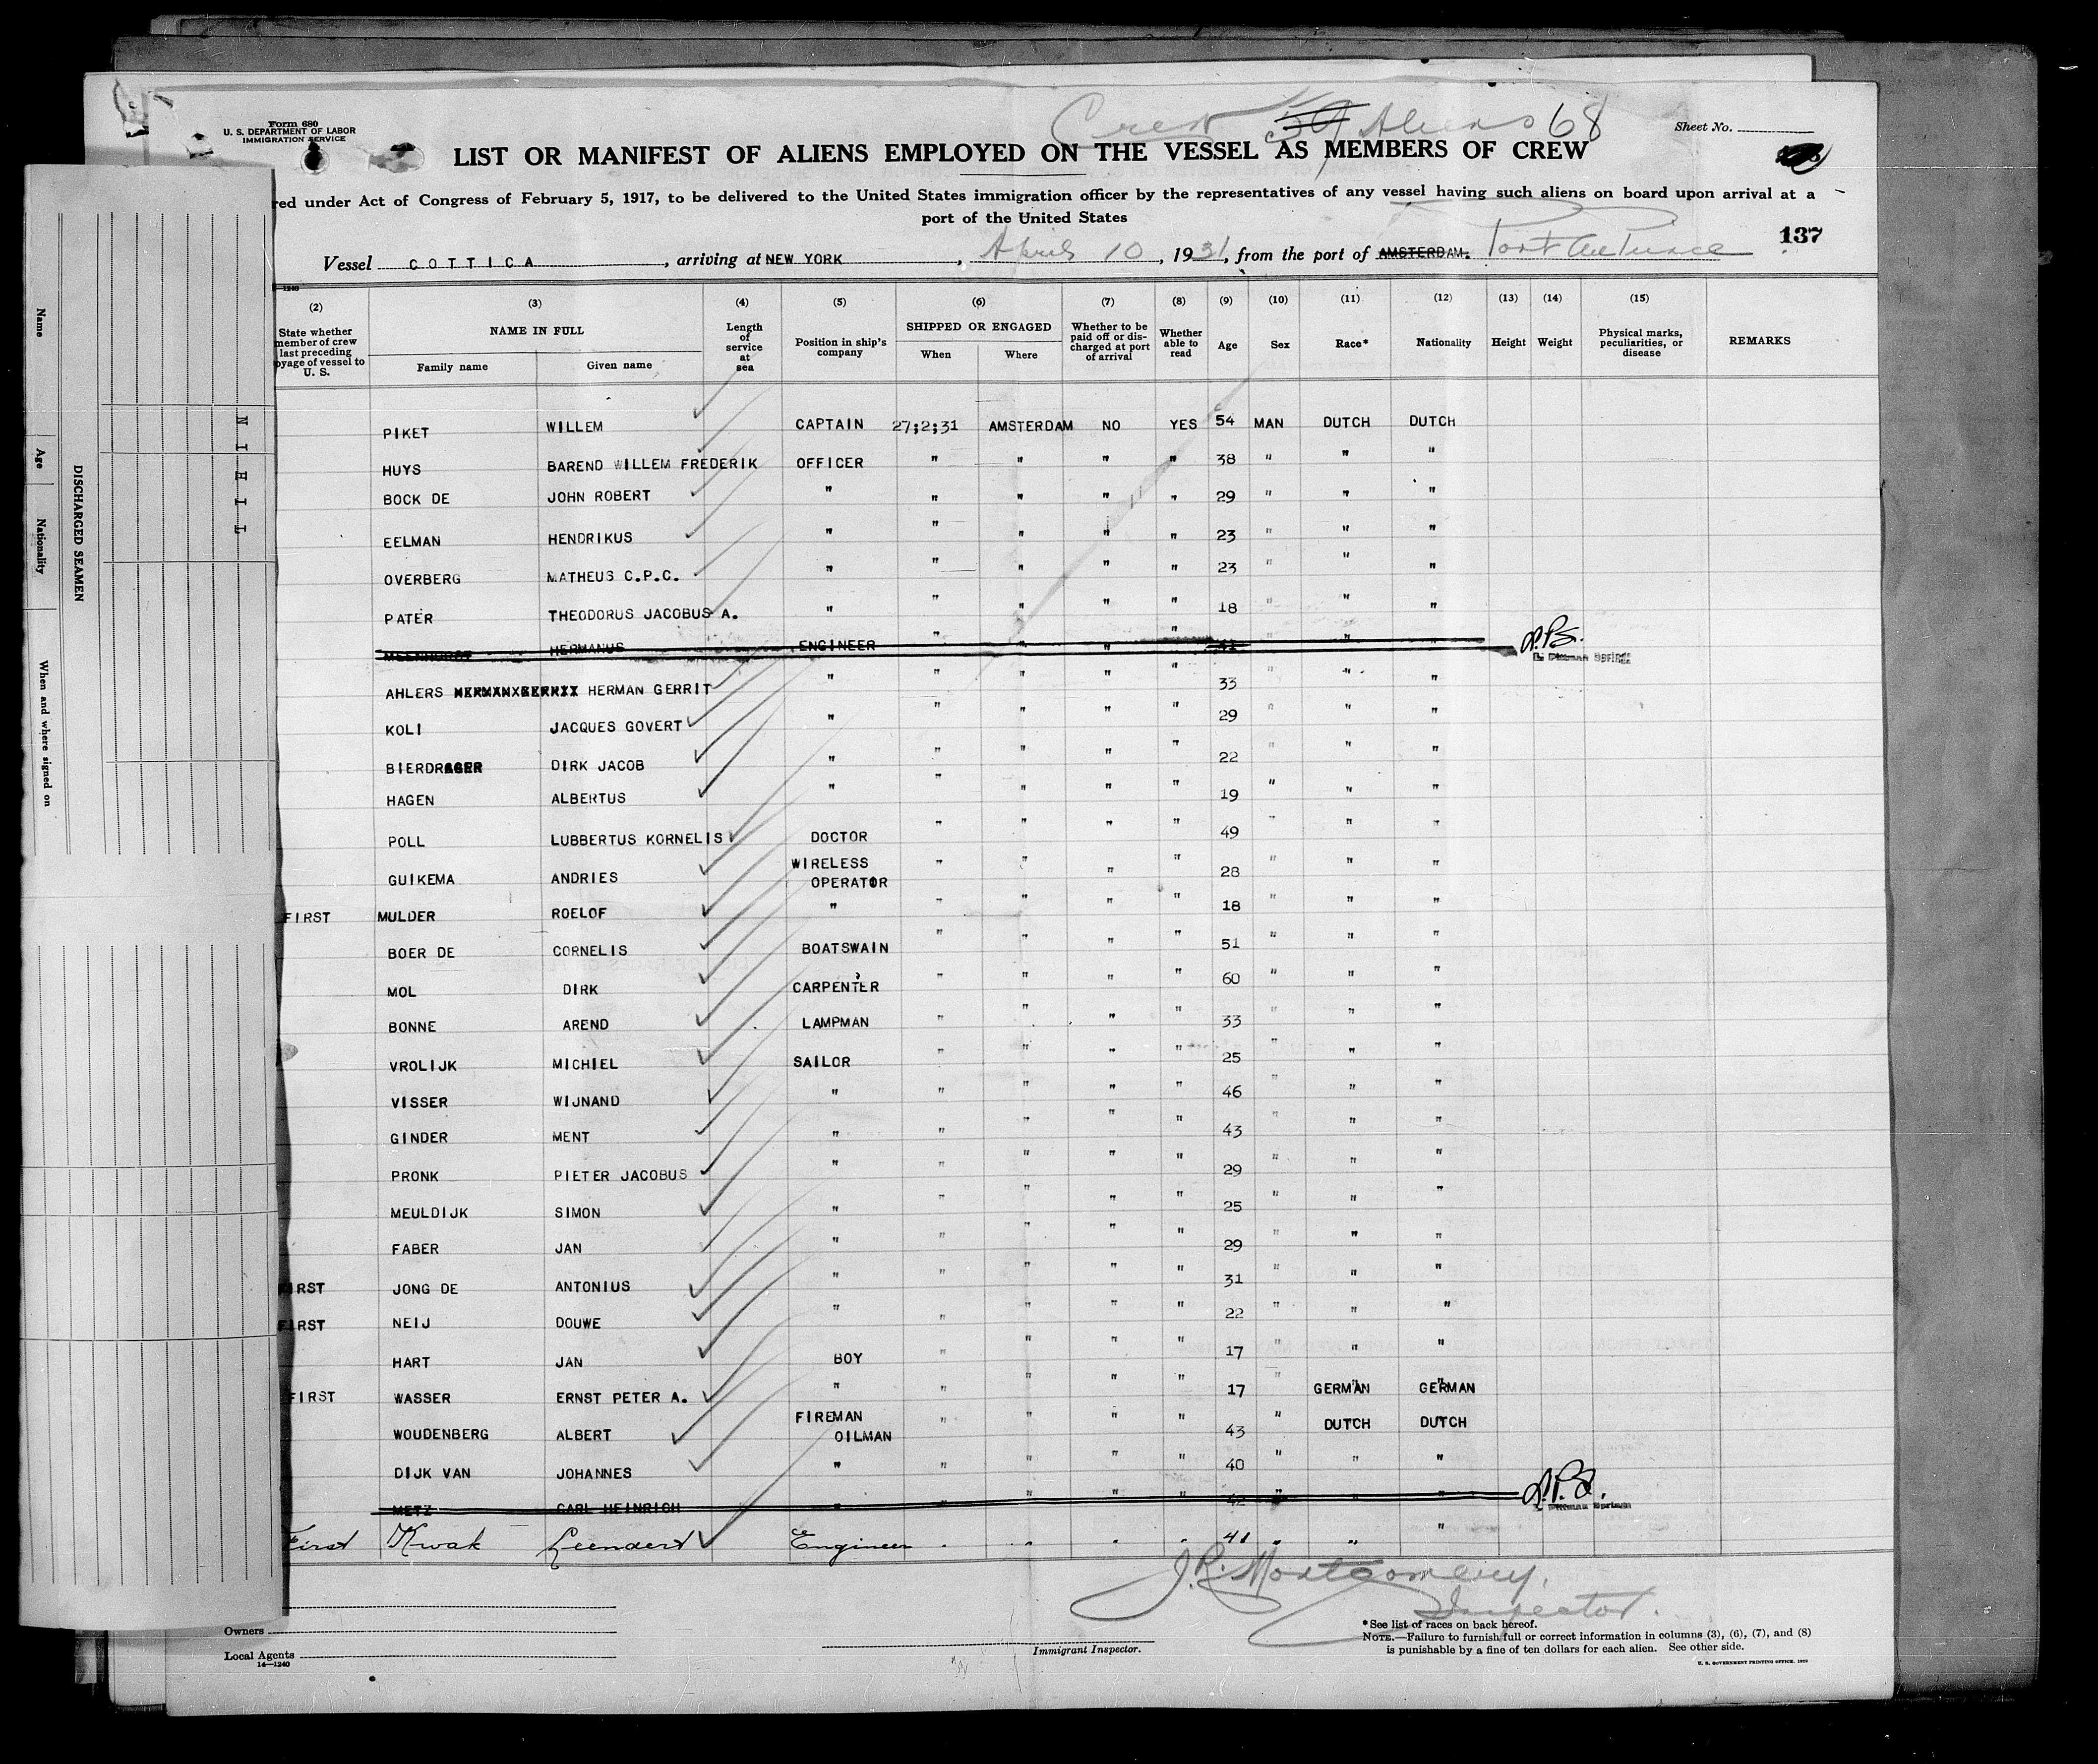 Crew 59 Aliens 68
Form 680
U. S. DEPARTMENT OF LABOR
IMMIGRATION SERVICE
Sheet No.
LIST OR MANIFEST OF ALIENS EMPLOYED ON THE VESSEL AS MEMBERS OF CREW
red under Act of Congress of February 5, 1917, to be delivered to the United States immigration officer by the representatives of any vessel having such aliens on board upon arrival at a
port of the United States
137
Vessel COTTICA, arriving at NEW YORK, April 10, 1931, from the port of AMSTERDAM. Port Au Prince
(2) (3) (4) (5) (6) (7) (8) (9) (10) (11) (12) (13) (14) (15)
State whether member of crew last preceding voyage of vessel to U. S.
NAME IN FULL
Family name Given name
Length of service at sea
Position in ship's company
SHIPPED OR ENGAGED
When Where
Whether to be paid off or discharged at port of arrival
Whether able to read
Age Sex Race* Nationality Height Weight
Physical marks, peculiarities, or disease
REMARKS
PIKET WILLEM CAPTAIN 27;2;31 AMSTERDAM NO YES 54 MAN DUTCH DUTCH
HUYS BAREND WILLEM FREDERIK OFFICER " " " " 38 " " "
BOCK DE JOHN ROBERT " " " " " 29 " " "
EELMAN HENDRIKUS " " " " " 23 " " "
OVERBERG MATHEUS C.P.C. " " " " " 23 " " "
PATER THEODORUS JACOBUS A. " " " " " 18 " " "
HERMANUS ENGINEER " " " " 41 " " "
AHLERS HERMAN GERRIT " " " " " 33 " "
KOLI JACQUES GOVERT " " " " " 29 " " "
BIERDRAGER DIRK JACOB " " " " " 22 " " "
HAGEN ALBERTUS " " " " " 19 " " "
POLL LUBBERTUS KORNELIS DOCTOR " " " " 49 " " "
GUIKEMA ANDRIES WIRELESS OPERATOR " " " " 28 " " "
FIRST MULDER ROELOF " " " " " 18 " " "
BOER DE CORNELIS BOATSWAIN " " " " 51 " " "
MOL DIRK CARPENTER " " " " 60 " " "
BONNE AREND LAMPMAN " " " " 33 " " "
VROLIJK MICHIEL SAILOR " " " " 25 " " "
VISSER WIJNAND " " " " " 46 " " "
GINDER MENT " " " " " 43 " " "
PRONK PIETER JACOBUS " " " " " 29 " " "
MEULDIJK SIMON " " " " " 25 " " "
FABER JAN " " " " " 29 " " "
FIRST JONG DE ANTONIUS " " " " " 31 " " "
FIRST NEIJ DOUWE " " " " " 22 " " "
HART JAN BOY " " " " 17 " " "
FIRST WASSER ERNST PETER A. " " " " " 17 " GERMAN GERMAN
WOUDENBERG ALBERT FIREMAN OILMAN " " " " 43 " DUTCH DUTCH
DIJK VAN JOHANNES " " " " " 40 " " "
METZ CARL HEINRICH " " " " " 42 " " "
First Kwak Leendert Engineer " " " " 41 " " "
J.R. Montgomery,
Inspector.
Owners
Local Agents
14—1240
Immigrant Inspector.
*See list of races on back hereof.
NOTE.—Failure to furnish full or correct information in columns (3), (6), (7), and (8)
is punishable by a fine of ten dollars for each alien. See other side.
U. S. GOVERNMENT PRINTING OFFICE
DISCHARGED SEAMEN
Name
Age
Nationality
When and where signed on
NIHIL